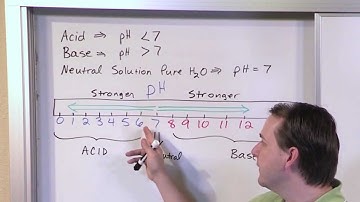 Acid ⇒ pH < 7
Base ⇒ pH > 7
Neutral Solution Pure H₂O ⇒ pH = 7
Stronger pH Stronger
0 1 2 3 4 5 6 7 8 9 10 11 12
ACID